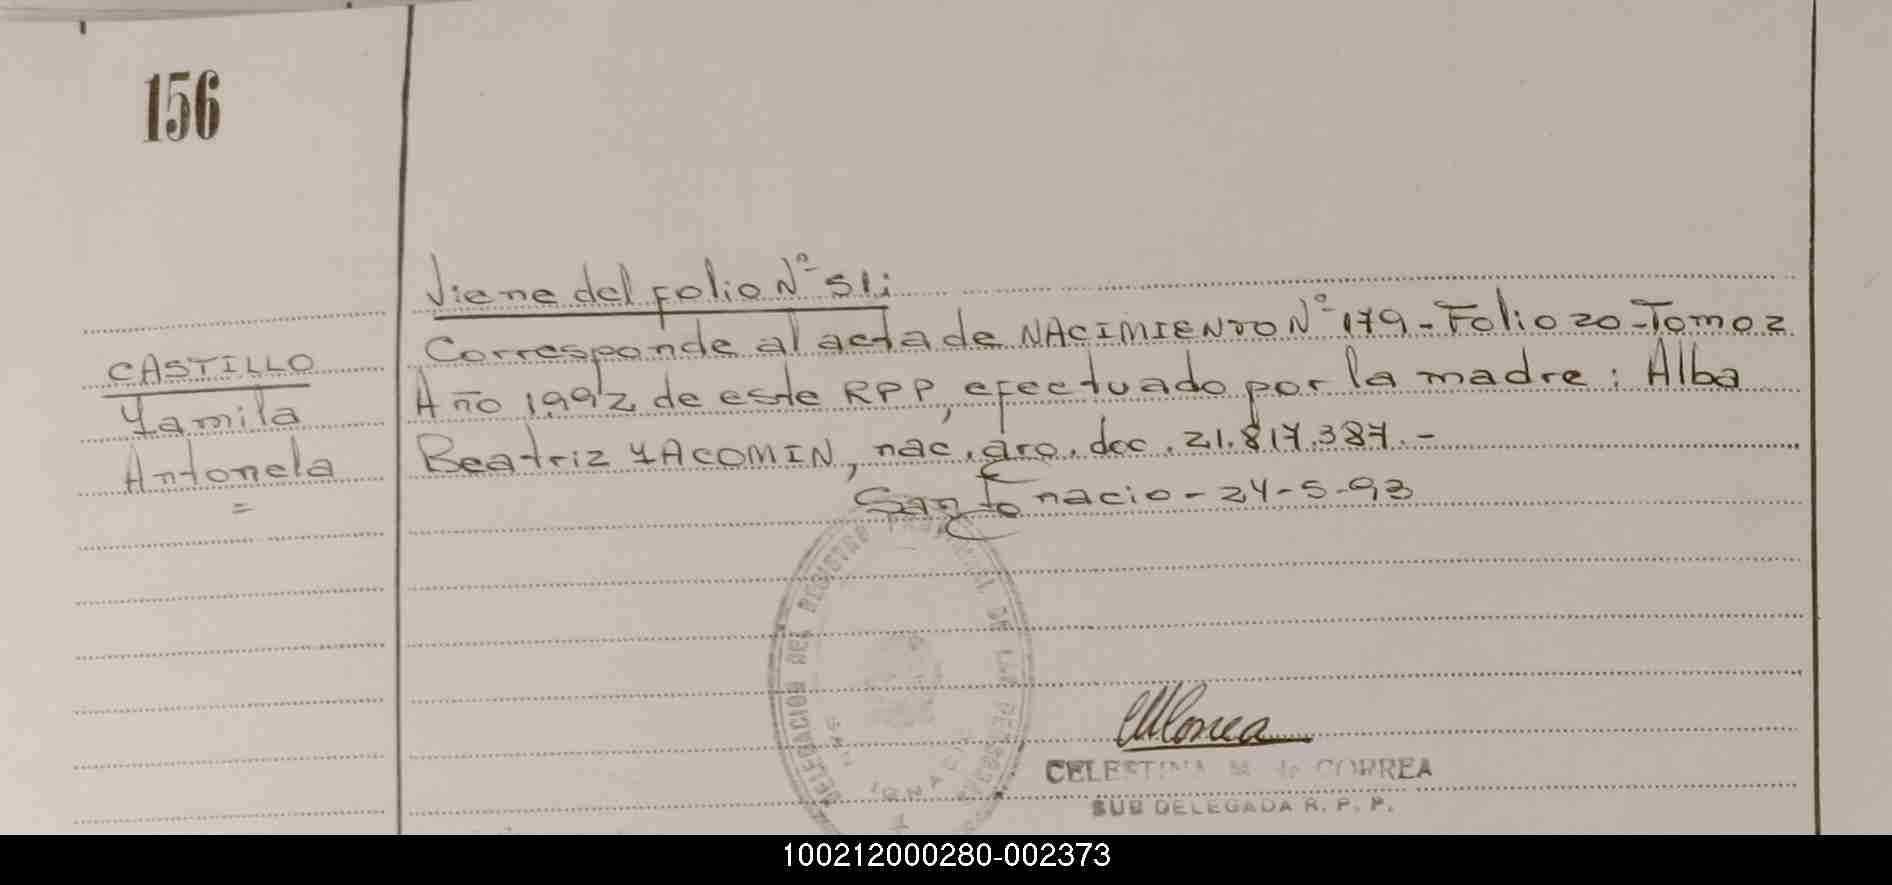 156
Viene del folio Nº 51:
CASTILLO
Yamila
Antonela
=
Corresponde al acta de NACIMIENTO Nº 179 - Folio 20 - Tomo 2
Año 1992 de este RPP, efectuado por la madre: Alba
Beatriz YACOMIN, nac. aro. doc. 21.817.387.-
San Ignacio - 24-5-93
DELEGACION DEL REGISTRO PROVINCIAL DE LAS PERSONAS
SAN IGNACIO
CELESTINA M. de CORREA
SUB DELEGADA R. P. P.
100212000280-002373